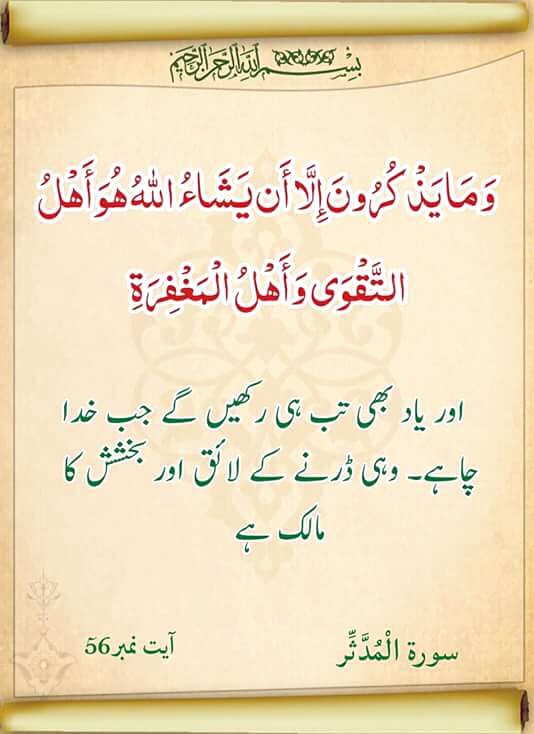 بسم الله الرحمن الرحيم
وَمَا يَذْكُرُونَ إِلَّا أَن يَشَاءُ اللهُ هُوَ أَهْلُ
التَّقْوَى وَأَهْلُ الْمَغْفِرَةِ
اور یاد بھی تب ہی رکھیں گے جب خدا
چاہے۔ وہی ڈرنے کے لائق اور بخشش کا
مالک ہے
سورة الْمُدَّثِّر
آیت نمبر 56